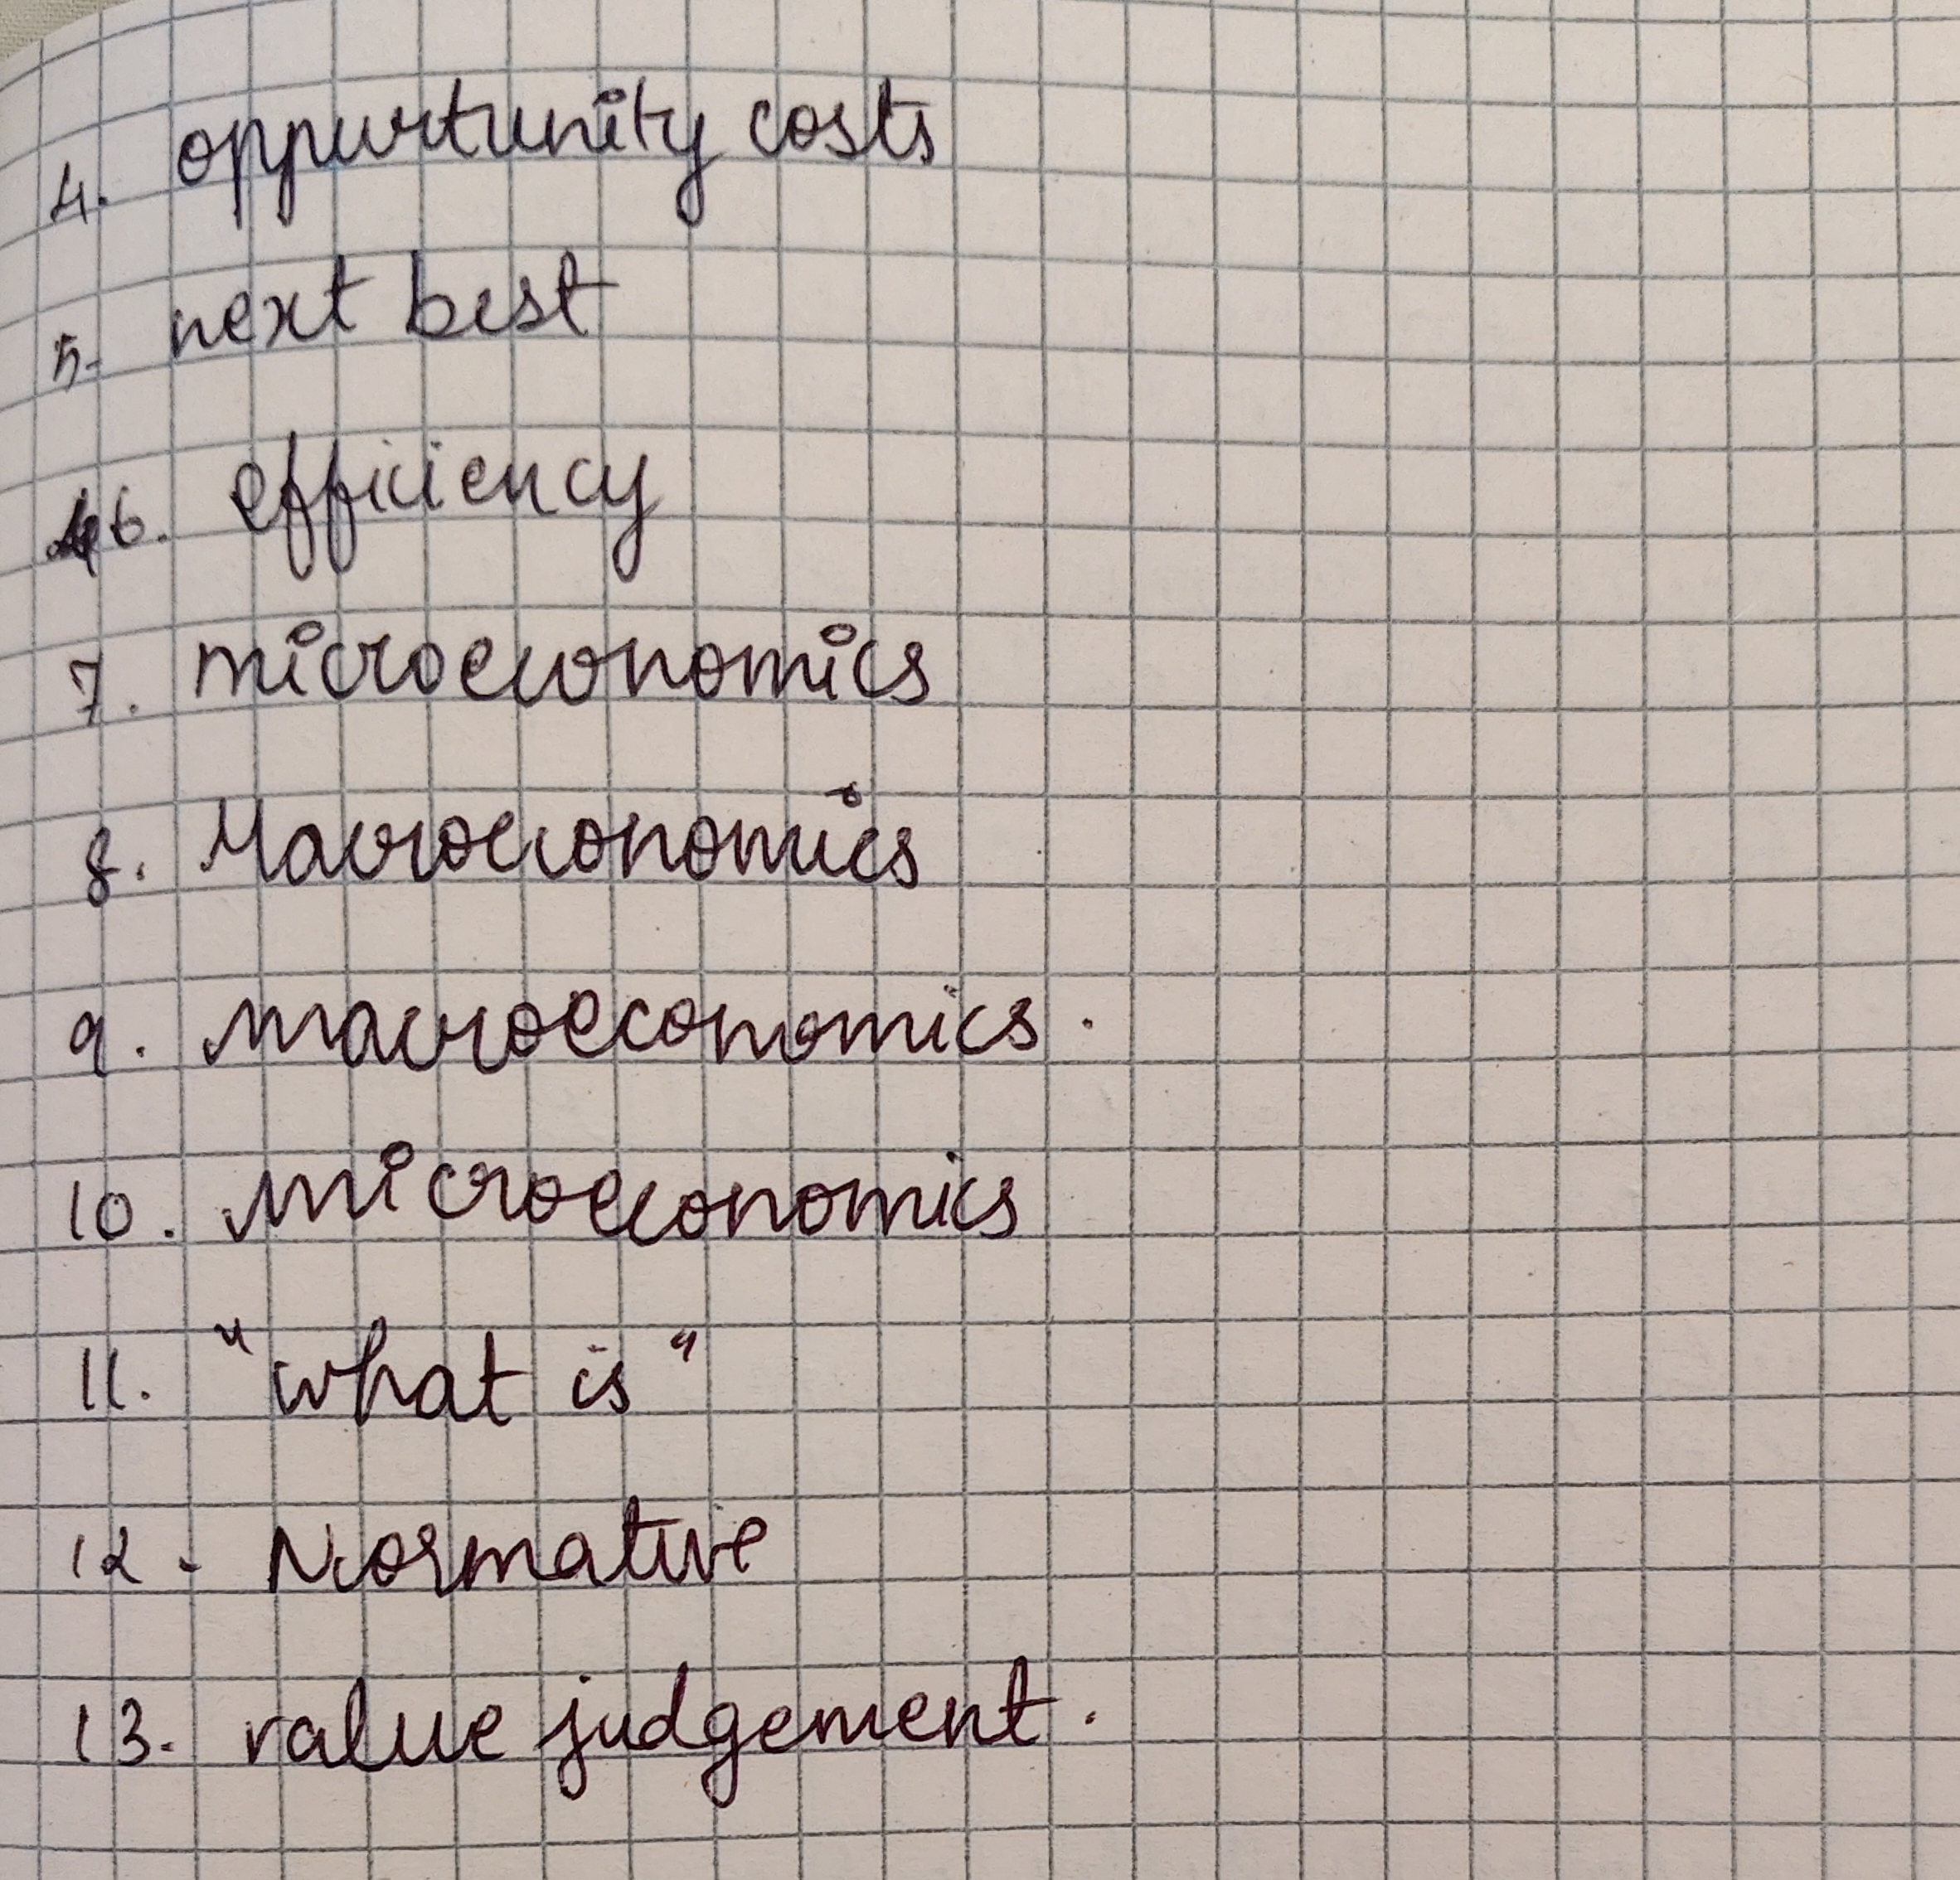 4. oppurtunity costs
5. next best
6. efficiency
7. microeconomics
8. Macroeconomics
9. macroeconomics.
10. microeconomics
11. "what is"
12. Normative
13. value judgement.